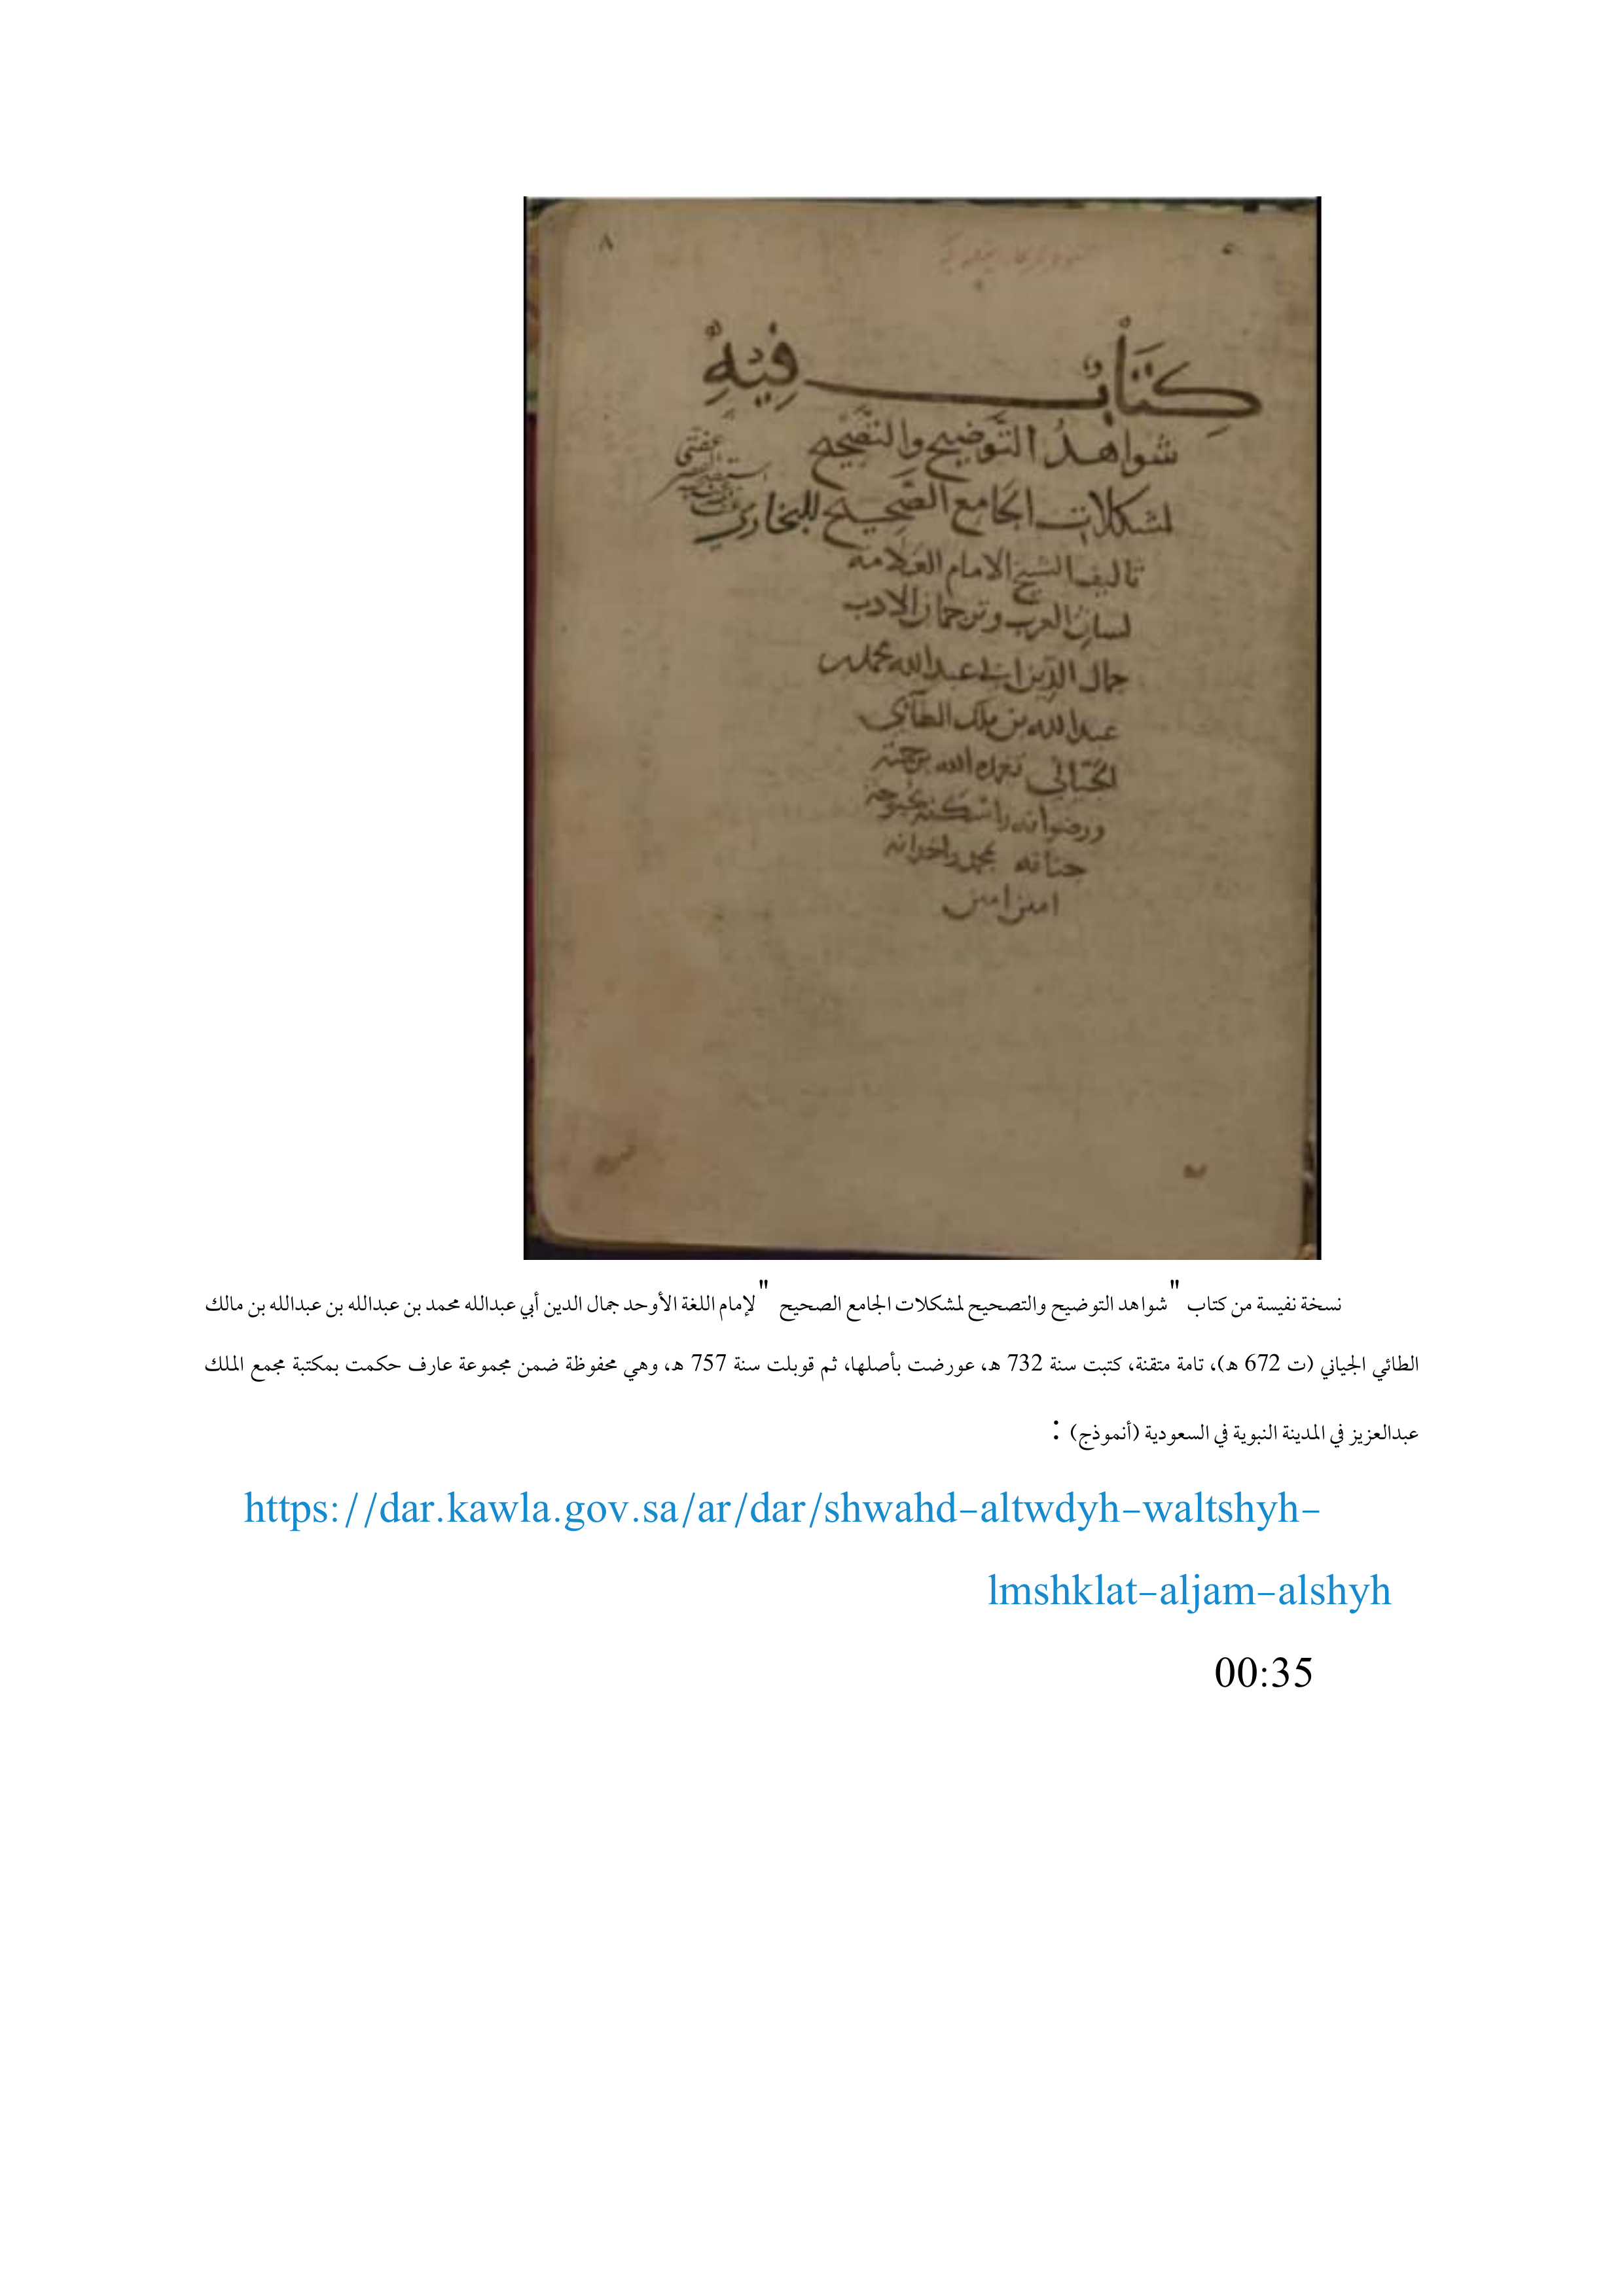 ٨
كِتَابٌ فِيْهِ
شواهدُ التَّوضيح والتَّصْحِيح
لمشكلات الجَامع الصَّحِيح للبخاري
تاليف الشيخ الامام العلامة
لسان العرب وترجمان الادب
جمال الدين ابى عبد الله محمد بن
عبد الله بن ملك الطائي
الجَيَّانِي تغمده الله برحمته
ورضوانه واسكنه بحبوحة
جنانه بمحمد
امين امين
نسخة نفيسة من كتاب "شواهد التوضيح والتصحيح لمشكلات الجامع الصحيح" لإمام اللغة الأوحد جمال الدين أبي عبدالله محمد بن عبدالله بن عبدالله بن مالك
الطائي الجياني (ت 672 هـ)، تامة متقنة، كتبت سنة 732 هـ، عورضت بأصلها، ثم قوبلت سنة 757 هـ، وهي محفوظة ضمن مجموعة عارف حكمت بمكتبة مجمع الملك
عبدالعزيز في المدينة النبوية في السعودية (أنموذج) :
https://dar.kawla.gov.sa/ar/dar/shwahd-altwdyh-waltshyh-
lmshklat-aljam-alshyh
00:35